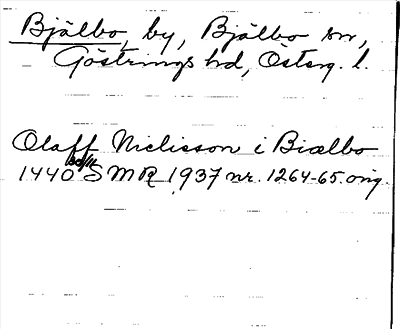 Bjälbo, by, Bjälbo sn,
Göstrings hd, Östерg. l.
Olaff Niclisson i Biælbo
1440 30/11 SMR 1937 nr. 1264-65. orig.